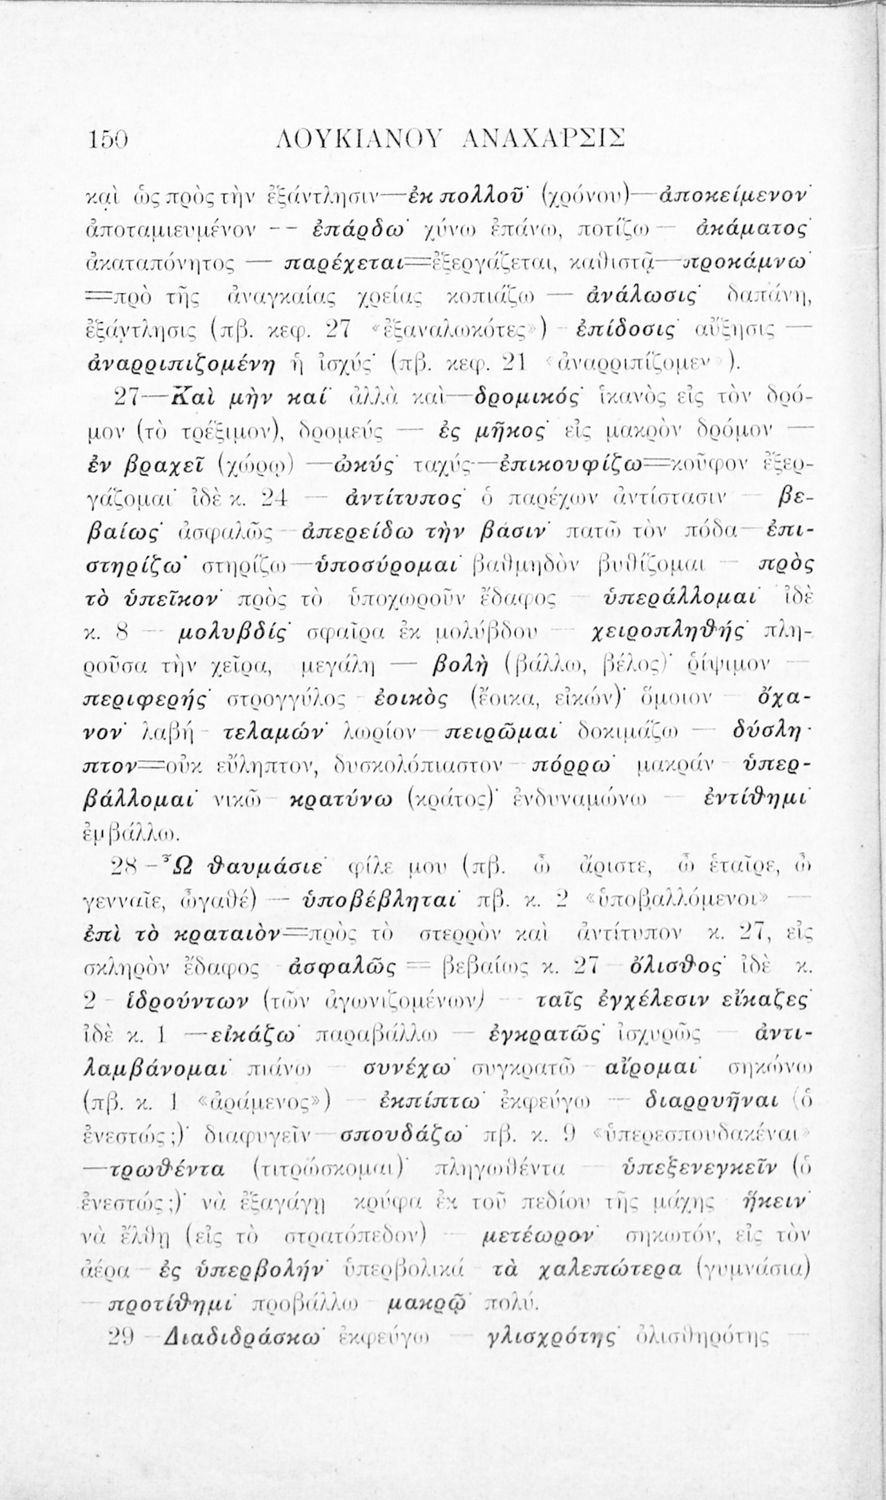 150 ΛΟΥΚΙΑΝΟΥ ΑΝΑΧΑΡΣΙΣ
καὶ ὡς πρὸς τὴν ἐξάντλησιν—ἐκ πολλοῦ· (χρόνου)—ἀποκείμενον·
ἀποταμιευμένον -- ἐπάρδω· χύνω ἐπάνω, ποτίζω — ἀκάματος·
ἀκαταπόνητος — παρέχεται=ἐξεργάζεται, καθιστᾷ—προκάμνω·
=πρὸ τῆς ἀναγκαίας χρείας κοπιάζω — ἀνάλωσις· δαπάνη,
ἐξάντλησις (πβ. κεφ. 27 «ἐξαναλωκότες») ἐπίδοσις· αὔξησις —
ἀναρριπιζομένη ἡ ἰσχύς· (πβ. κεφ. 21 «ἀναρριπίζομεν»).
27—Καὶ μὴν καί· ἀλλὰ καὶ—δρομικός· ἱκανὸς εἰς τὸν δρό-
μον (τὸ τρέξιμον), δρομεύς — ἐς μῆκος· εἰς μακρὸν δρόμον —
ἐν βραχεῖ (χώρῳ) —ὠκύς· ταχύς—ἐπικουφίζω=κοῦφον ἐξερ-
γάζομαι· ἰδὲ κ. 24 — ἀντίτυπος· ὁ παρέχων ἀντίστασιν βε-
βαίως· ἀσφαλῶς—ἀπερείδω τὴν βάσιν· πατῶ τὸν πόδα—ἐπι-
στηρίζω· στηρίζω—ὑποσύρομαι· βαθμηδὸν βυθίζομαι — πρὸς
τὸ ὑπεῖκον· πρὸς τὸ ὑποχωροῦν ἔδαφος — ὑπεράλλομαι· ἰδὲ
κ. 8 — μολυβδίς· σφαῖρα ἐκ μολύβδου — χειροπληθής· πλη-
ροῦσα τὴν χεῖρα, μεγάλη — βολὴ (βάλλω, βέλος)· ῥίψιμον —
περιφερής· στρογγύλος - ἐοικὸς (ἔοικα, εἰκών)· ὅμοιον ὄχα-
νον· λαβή - τελαμών· λωρίον—πειρῶμαι· δοκιμάζω — δύσλη-
πτον=οὐκ εὔληπτον, δυσκολόπιαστον—πόρρω· μακράν ὑπερ-
βάλλομαι· νικῶ—κρατύνω (κράτος)· ἐνδυναμώνω — ἐντίθημι·
ἐμβάλλω.
28—Ὦ θαυμάσιε· φίλε μου (πβ. ὦ ἄριστε, ὦ ἑταῖρε, ὦ
γενναῖε, ὦγαθέ) — ὑποβέβληται· πβ. κ. 2 «ὑποβαλλόμενοι» —
ἐπὶ τὸ κραταιὸν=πρὸς τὸ στερρὸν καὶ ἀντίτυπον κ. 27, εἰς
σκληρὸν ἔδαφος ἀσφαλῶς = βεβαίως κ. 27 ὄλισθος· ἰδὲ κ.
2 - ἱδρούντων (τῶν ἀγωνιζομένων) — ταῖς ἐγχέλεσιν εἴκαζες·
ἰδὲ κ. 1 —εἰκάζω· παραβάλλω — ἐγκρατῶς· ἰσχυρῶς — ἀντι-
λαμβάνομαι· πιάνω — συνέχω· συγκρατῶ—αἴρομαι· σηκώνω
(πβ. κ. 1 «ἀράμενος») — ἐκπίπτω· ἐκφεύγω — διαρρυῆναι (ὁ
ἐνεστώς;)· διαφυγεῖν—σπουδάζω· πβ. κ. 9 «ὑπερεσπουδακέναι»
—τρωθέντα (τιτρώσκομαι)· πληγωθέντα ὑπεξενεγκεῖν (ὁ
ἐνεστώς;)· νὰ ἐξαγάγῃ κρύφα ἐκ τοῦ πεδίου τῆς μάχης ἥκειν·
νὰ ἔλθῃ (εἰς τὸ στρατόπεδον) — μετέωρον· σηκωτόν, εἰς τὸν
ἀέρα—ἐς ὑπερβολήν· ὑπερβολικά τὰ χαλεπώτερα (γυμνάσια)
— προτίθημι· προβάλλω—μακρῷ· πολύ.
29—Διαδιδράσκω· ἐκφεύγω — γλισχρότης· ὀλισθηρότης —